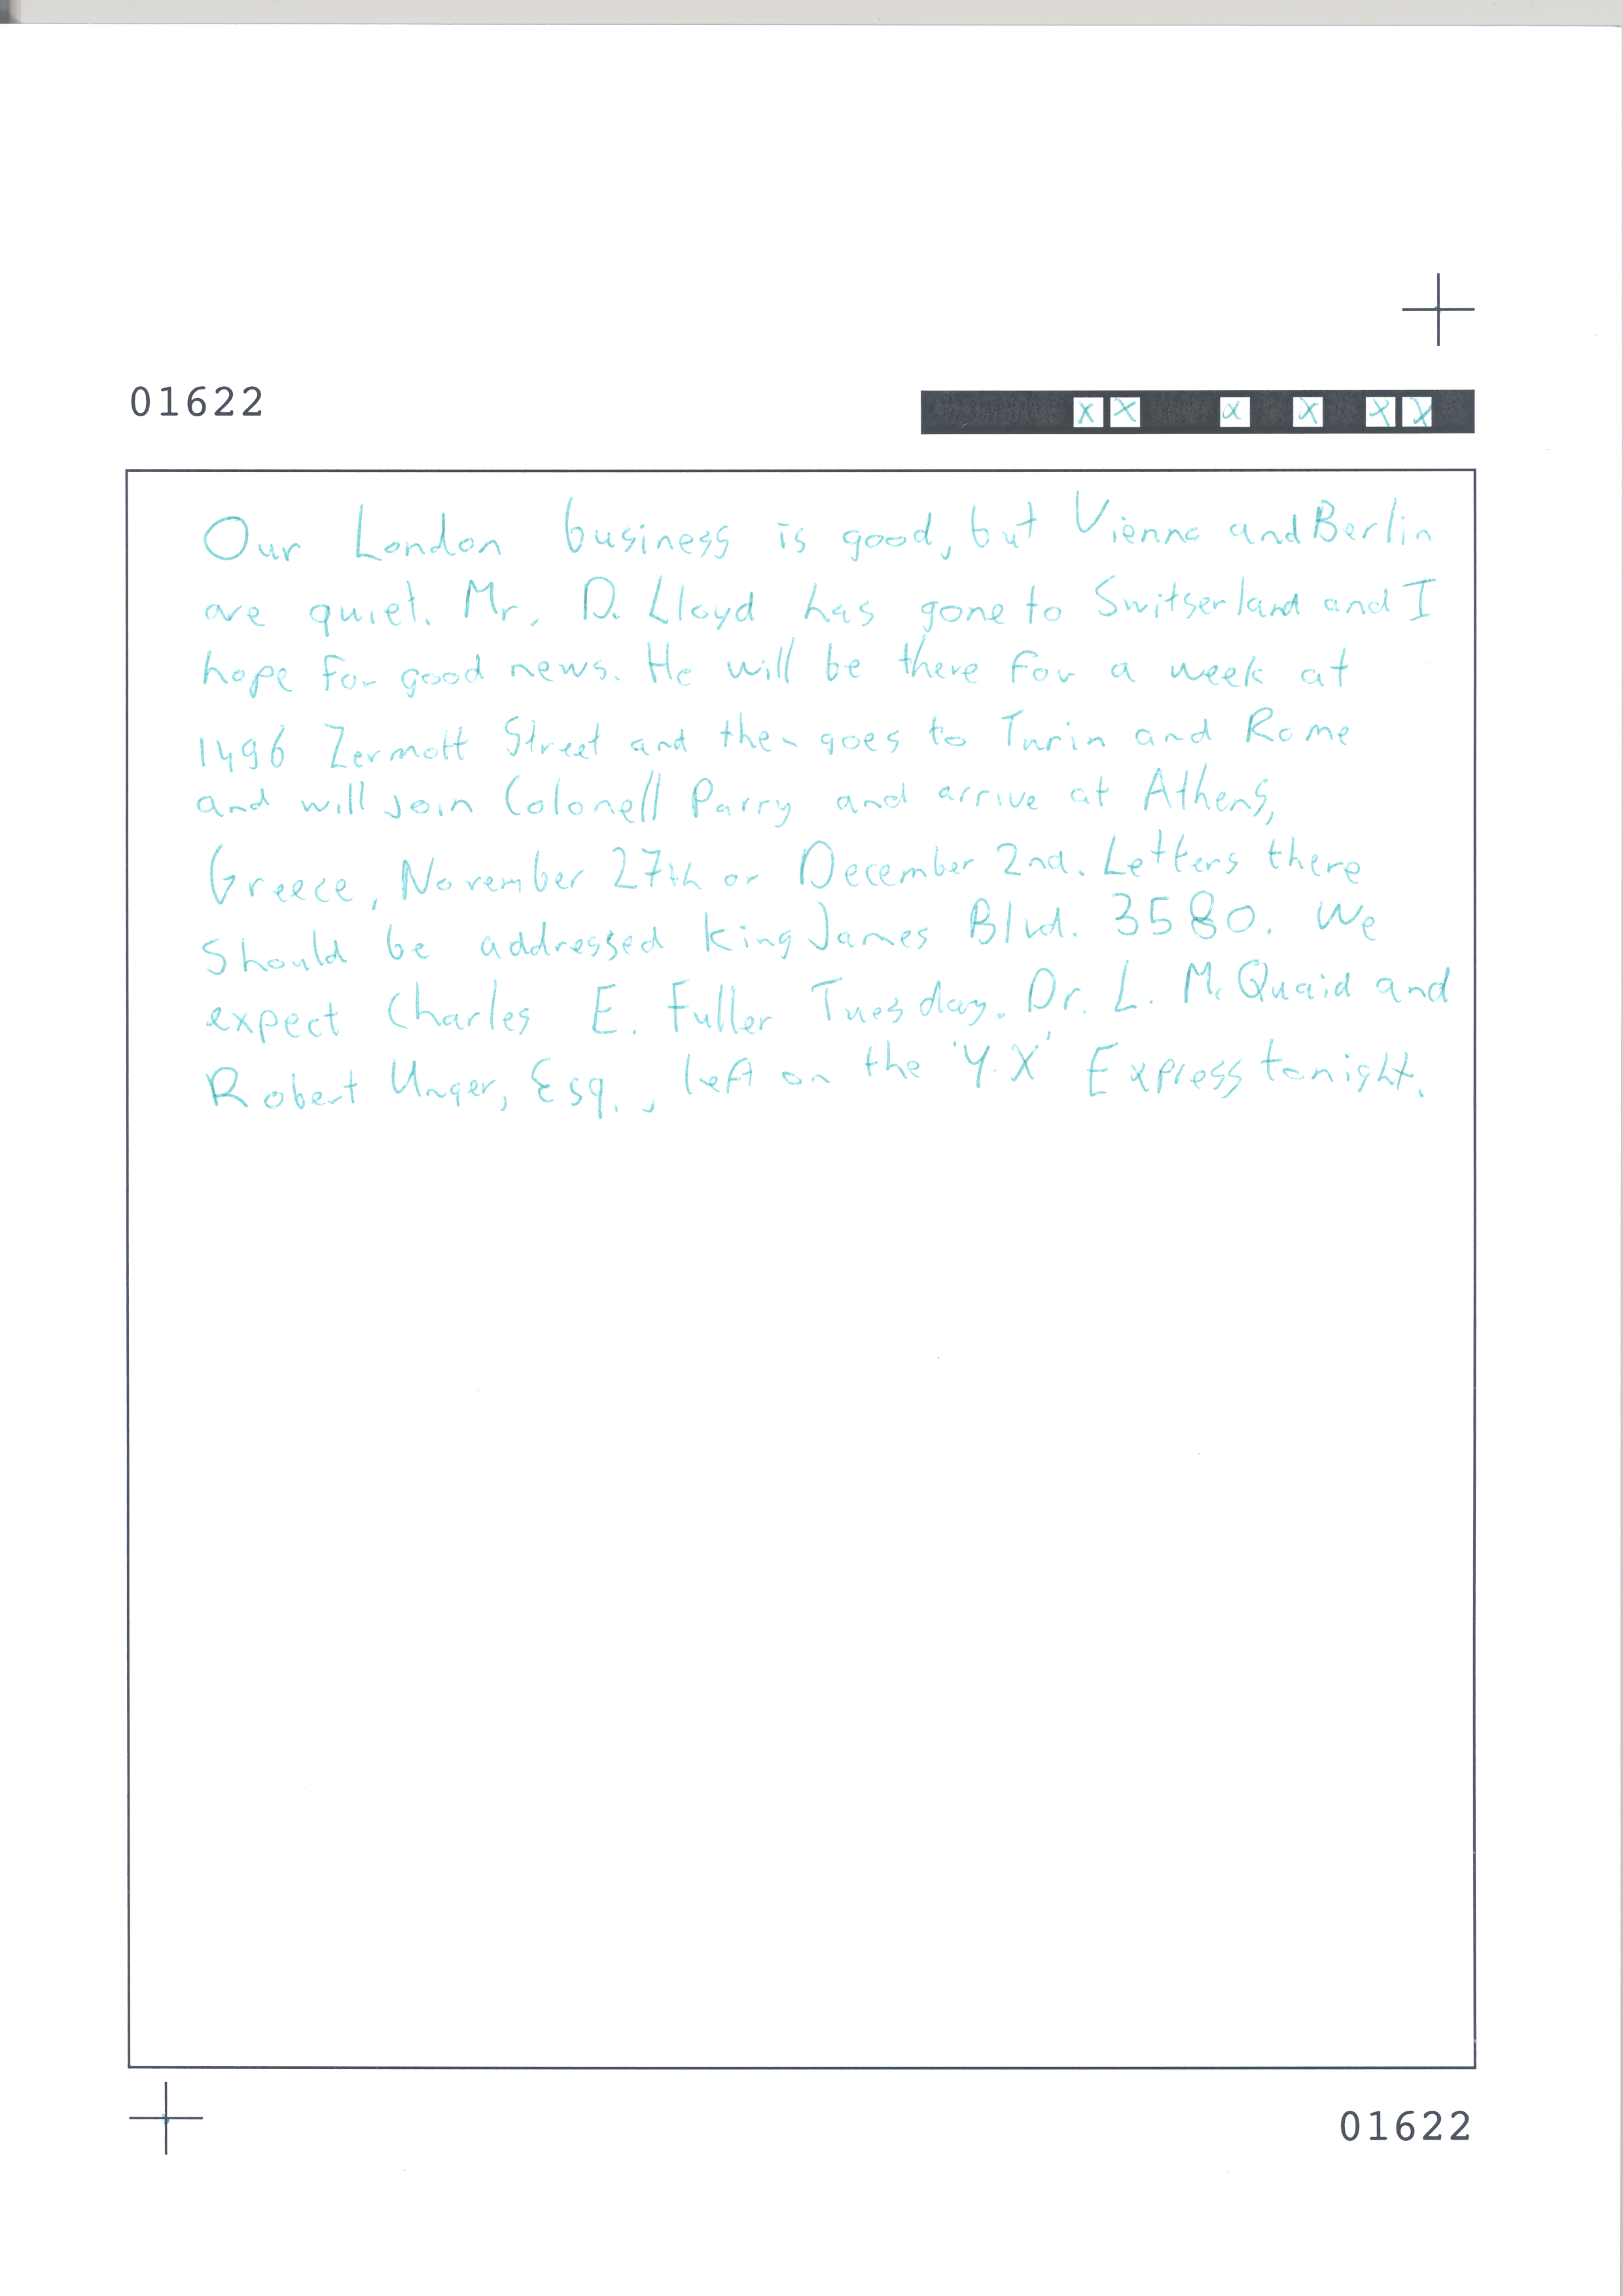 01622
x x x x x x
Our London business is good, but Vienna and Berlin
are quiet. Mr. D. Lloyd has gone to Switserland and I
hope for good news. He will be there for a week at
1496 Zermott Street and then goes to Turin and Rome
and will join Colonell Parry and arrive at Athens,
Greece, November 27th or December 2nd. Letters there
should be addressed King James Blvd. 3580. We
expect Charles E. Fuller Tuesday. Dr. L. McQuaid and
Robert Unger, Esq., left on the 'Y.X' Express tonight.
01622